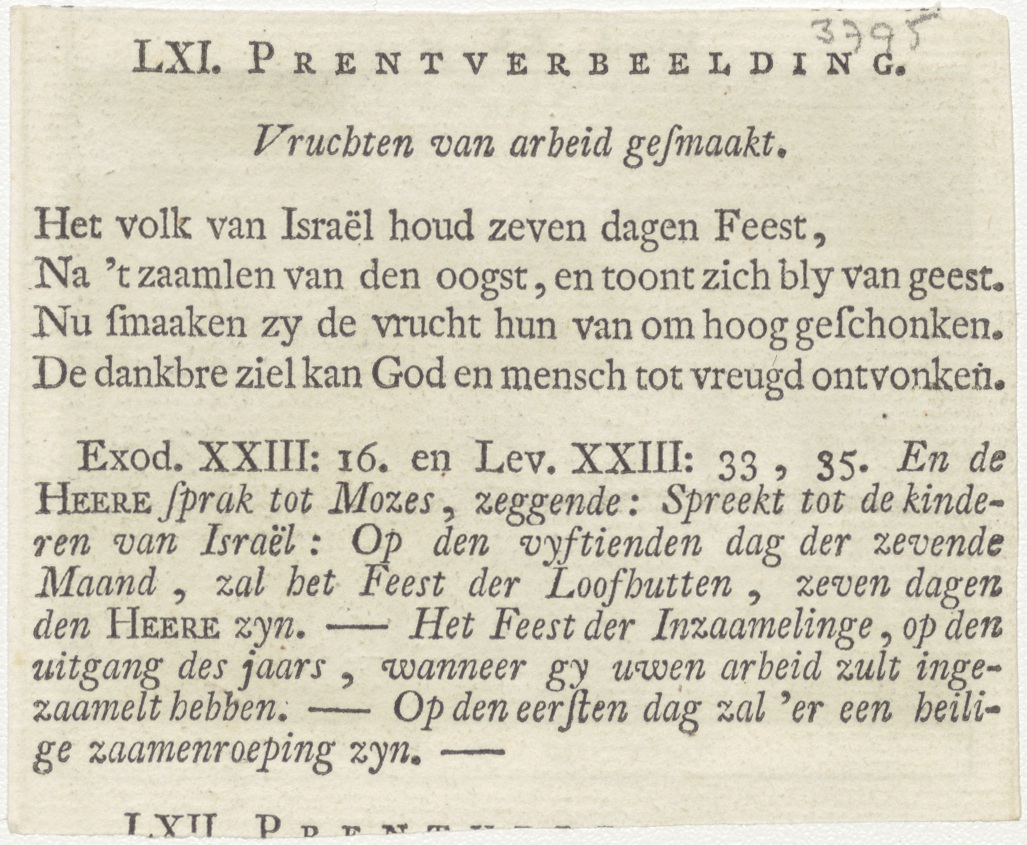 3795
LXI. PRENTVERBEELDING.
Vruchten van arbeid geſmaakt.
Het volk van Israël houd zeven dagen Feest,
Na 't zaamlen van den oogst, en toont zich bly van geest.
Nu ſmaaken zy de vrucht hun van om hoog geſchonken.
De dankbre ziel kan God en mensch tot vreugd ontvonken.
Exod. XXIII: 16. en Lev. XXIII: 33, 35. En de
HEERE ſprak tot Mozes, zeggende: Spreekt tot de kinde-
ren van Israël: Op den vyftienden dag der zevende
Maand, zal het Feest der Loofhutten, zeven dagen
den HEERE zyn. — Het Feest der Inzaamelinge, op den
uitgang des jaars, wanneer gy uwen arbeid zult inge-
zaamelt hebben. — Op den eerſten dag zal 'er een heili-
ge zaamenroeping zyn. —
LXII PRENTVERB